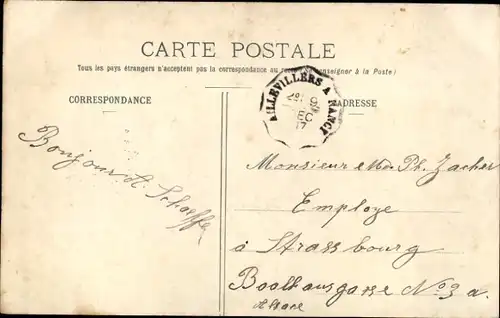 CARTE POSTALE
Tous les pays étrangers n'acceptent pas la correspondance au recto (se renseigner à la Poste)
CORRESPONDANCE
ADRESSE
AILLEVILLERS A NANCY
9
DEC
Bonjour A. Schaeffer
Monsieur et Mde Ph. Zacher
Employe
à Strassbourg
No 3 a.
Alsace